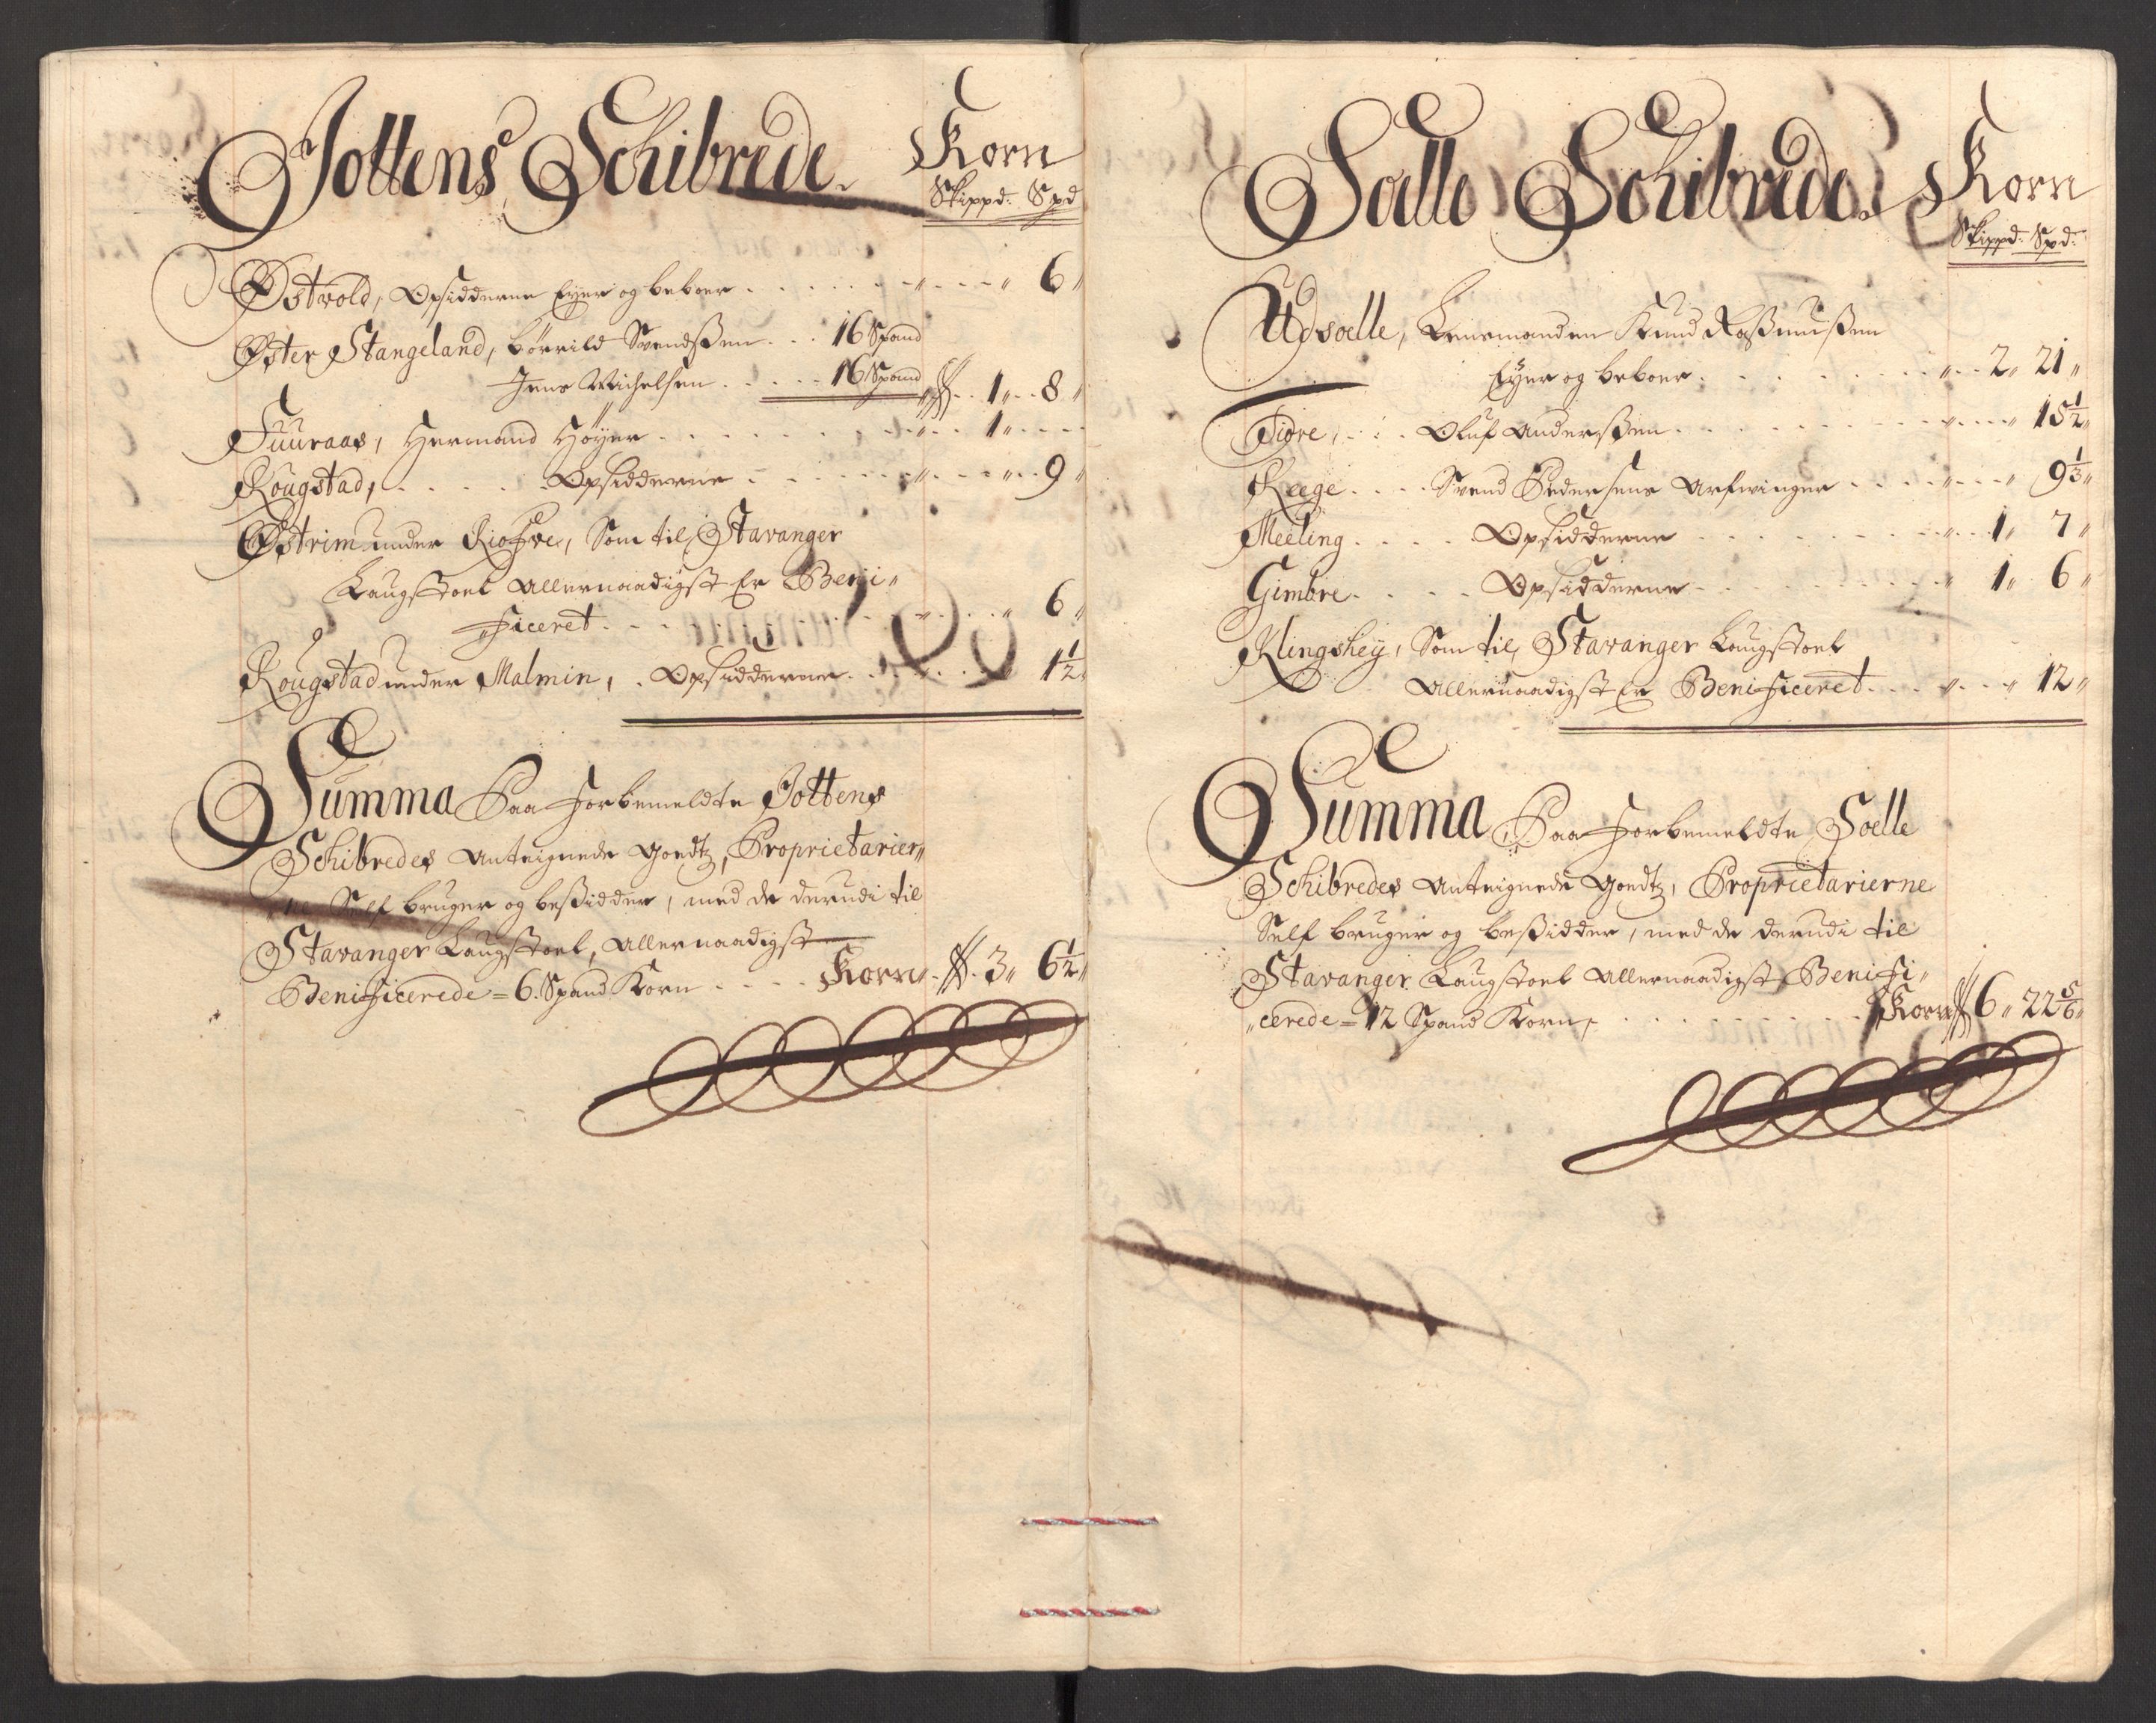 Jottens Schibrede.
Korn
Skippd: Spd
Østvold, Opsidderne Eyer og beboer . . . . . . „ . . . „ 6 „
Øster Stangeland, Børrild Svendßen . . . 16 Spand
Jens Michelsen . . . . . 16 Spand . . 1 „ . . 8 „
Fuuraas, Hermand Höyer . . . . . . „ . . 1 „ . . .
Rougstad, . . . . . Opsidderne . . . . . . „ . . . „ . . 9 „
Østrim under Riofve, Som til Stavanger
Laugstoel Allernaadigst Er Beni„
„ficeret . . . . . . „ . . . „ 6 „
Rougstad under Malmin, . Opsidderne . . . . . 1½ „
Summa Paa forbemeldte Jottens
Schibredes Anteignede Goedtz, Proprietarier„
„ne Self bruger og beßidder, med de derudi til
Stavanger Laugstoel, Allernaadigst
Benificerede = 6. Spand Korn . . . . Korn . 3 „ 6½ „
Soelle Schibrede.
Korn
Skippd: Spd:
Udsoelle, Lensmanden Knud Raßmußen
Eyer og beboer . . . . . . „ . . 2 „ 21 „
Tiore, . . . Oluf Anderßen . . . . . . „ . . . „ 15½ „
Reege . . . . Svend Pedersens Arfvinger . . . . „ . . . „ 9⅓ „
Meeling . . . . . Opsidderne . . . . . . „ . . 1 „ 7 „
Gimbre . . . . . Opsidderne . . . . . . „ 1 „ 6 „
Klingshey, Som til Stavanger Laugstoel
Allernaadigst Er Benificeret . . . „ . . . „ 12 „
Summa Paa forbemeldte Soelle
Schibredes Anteignede Goedtz, Proprietarierne
Self bruger og beßidder, med de derudi til
Stavanger Laugstoel Allernaadigst Benifi„
„cerede = 12 Spand Korn, . . . . . . Korn 6 „ 22⅚ „